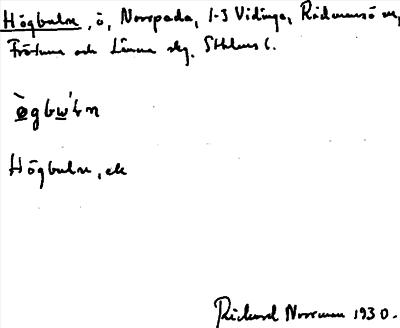 Högbuln, ö, Norrpada, 1-3 Vidinge, Rådmansö sn,
Frötuna och Länna skg. Sthlms l.
Högbuln, ek
Rickard Norrman 1930.